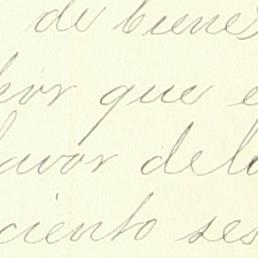 de bienes
por que e
favor del
ciento ses